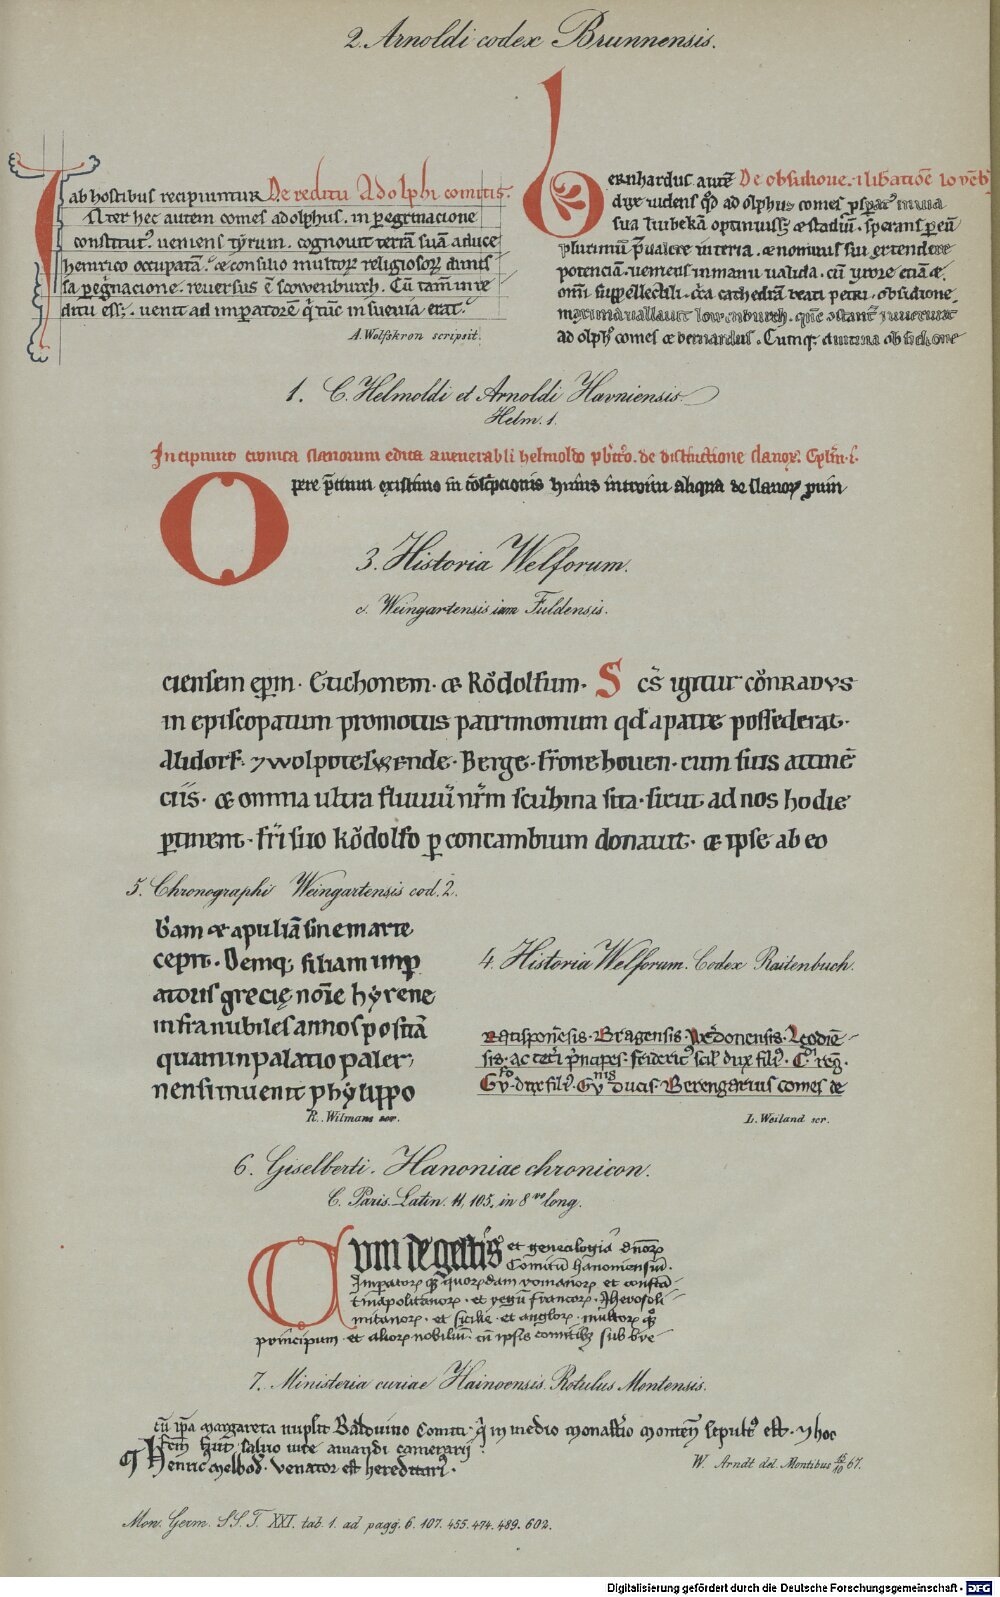 2. Arnoldi codex Brunnensis.
ab hostibus recipiuntur De reditu Adolphi comitis.
Ater hec autem comes adolphus. in pegrinacione
constitut᾿. ueniens tyrum. cognouit terrā suā a duce
heinrico occupatā. & consilio multoꝝ religiosoꝝ dimis
sa pegnacione. reuersus ē scowenburch. Cū tam̄ in re
ditu ess;. uenit ad imperatorē q̄ tūc in sueuia erat.
A. Wolfskron scripsit.
ernhardus autē De obsidione
dux uidens qd̄ adolphus comes
sua lubekā optinuiss; & stadiū. sperans p eū
plurimū p̄ualere in terra. & nominus sui extendere
potenciā. ueniens in manu ualida. cū uxore etiā &
om̄i suppellectili. c̄ca cathedrā beati petri. obsidione
maxima uallauit lowenburch.
ad olph᾿ comes & bernardus. Cumq;
1. C. Helmoldi et Arnoldi Havniensis.
Helm. 1.
Incipiunt cronica slauorum edita a uenerabili helmoldo pb̄ro. de distinctione slauoꝝ.
Opere p̄cium existimo in introitu aliqua de slauoꝝ
3. Historia Welforum.
c. Weingartensis iam Fuldensis.
ciensem ep̄m. Etichonem. & Rŏdolfum. Scs̄ igitur cŏnradus
in episcopatum promotus patrimonium qd̄ a patre possederat.
Alidorf. ⁊ wolpoteswende. Berge. frōnehouen. cum suis attinē
ciis. & omnia ultra fluuiū nr̄m scuhina sita. sicut ad nos hodie
ꝑtinent. fr̄i suo Rŏdolfo ꝑ concambium donauit. & ipse ab eo
5. Chronographi Weingartensis cod. 2.
b̄am & apuliā sine marte
cepit. Demq; filiam imꝑ
atoris grecię noīe hyrene
infra nubiles annos positā
quam in palatio paler,
nensi inuenit phylippo
R. Wilmans scr.
4. Historia Welforum. Codex Raitenbuch.
Ratisponēsis. Bragensis. Legdiē
sis. ac teri p̄ncipes. frideric᾿ scil. dux fili᾿. C. reg̅.
Gy. dux fili᾿. Gy ducis. Berengarius comes de
L. Weiland scr.
6. Giselberti. Hanoniae chronicon.
C. Paris. Latin. 11,105, in 8vo long.
Cum de gestis et genealogia dn̄oꝝ
Comitū hanoniensiū.
Imperatoꝝ qꝫ quoꝝdam romanoꝝ et constā
tinapolitanoꝝ. et regū francoꝝ. Iherosoli
mitanoꝝ. et sicilie et angloꝝ. multoꝝ qꝫ
principum et alioꝝ nobiliū. cū ipsis comitibꝫ sub bre
7. Ministeria curiae Hainoensis. Rotulus Montensis.
cū ip̄a Margareta nupsit Balduino Comiti. q̄ in medio monastio monteñ sepult᾿ est. ⁊ hoc
salvo iure amandi camerarii
¶ Henric melbod᾿. venator est hereditari᾿.
W. Arndt del. Montibus 12/10 67.
Mon. Germ. S.S. T. XXI. tab. 1. ad pagg. 6. 107. 455. 474. 489. 602.
Digitalisierung gefördert durch die Deutsche Forschungsgemeinschaft - DFG